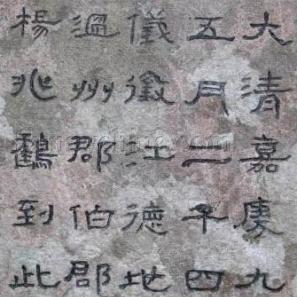 大清嘉慶九
五月二千四
儀徵江德地
溫州郡伯郡
楊兆鶴到此